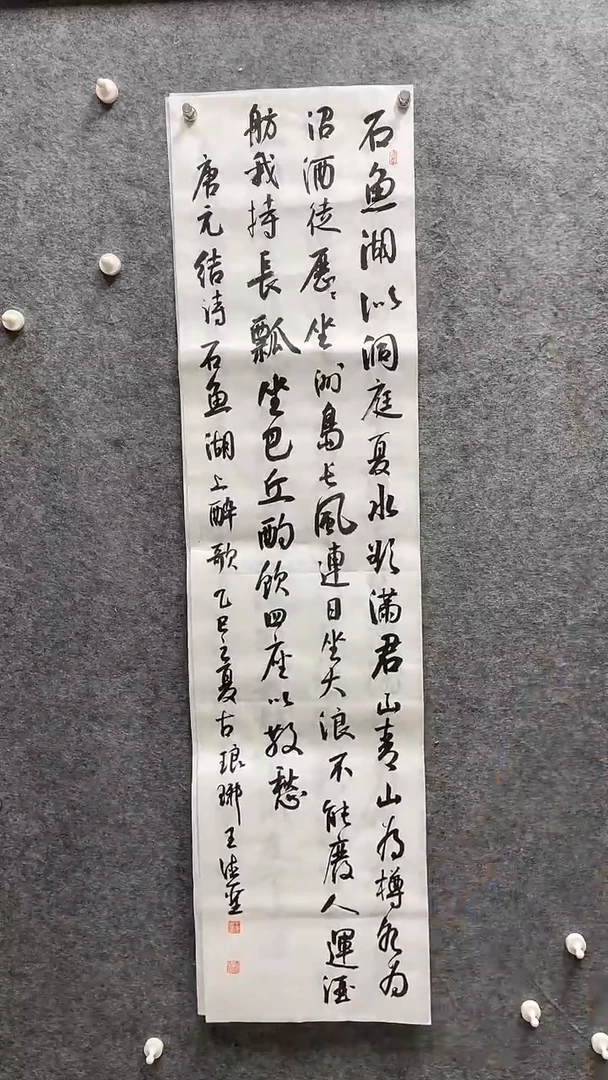 石鱼湖似洞庭夏水欲滿君山青山为樽水为
沼酒徒歷〻坐洲島长風連日坐大浪不能廢人運酒
舫我持長瓢坐巴丘酌飲四座以散愁
唐元结诗石鱼湖上醉歌乙巳之夏古琅琊王